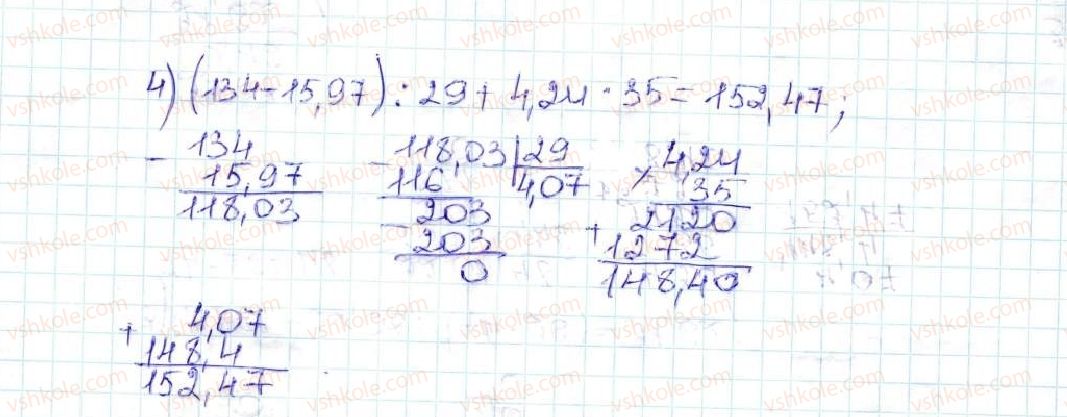 4) (134-15,97) : 29 + 4,24 · 35 = 152,47;
- 134
15,97
118,03
- 118,03 | 29
116 4,07
- 203
203
0
× 4,24
35
2120
+ 1272
148,40
+ 4,07
148,4
152,47
vshkole.com